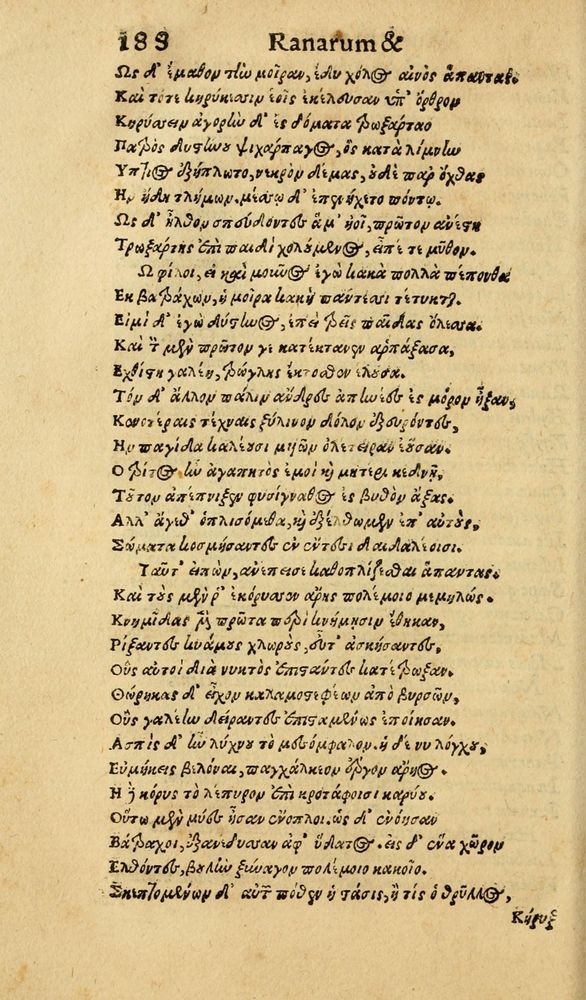 188 Ranarum &
Ως δ' ἔμαθον τὴν μοῖραν, ἔδυ χόλος αἰνὸς ἅπαντας.
Καὶ τότε κηρύκεσσιν ἑοῖς ἐκέλευσαν ὑπ' ὄρθρον
Κηρύσσειν ἀγορὴν δ' ἐς δόματα τρωξάρταο
Πατρὸς δυστήνου ψιχάρπαγος, ὃς κατὰ λίμνην
Υπτιος ἐξήπλωτο, νεκρὸν δέμας, οὐδὲ παρ' ὄχθας
Ην ἤδη τλήμων. μέσσῳ δ' ἐπενήχετο πόντῳ.
Ως δ' ἦλθον σπεύδοντες ἅμ' ἠοῖ, πρῶτον ἀνέστη
Τρωξάρτης ἐπὶ παιδὶ χολούμενος, εἶπέ τε μῦθον.
Ω φίλοι, εἰ καὶ μοῦνος ἐγὼ κακὰ πολλὰ πέπονθα
Εκ βατράχων, ἡ μοῖρα κακὴ πάντεσσι τέτυκται.
Εἰμὶ δ' ἐγὼ δύστηνος, ἐπεὶ τρεῖς παῖδας ὄλεσσα.
Καὶ τὸν μὲν πρῶτον γε κατέκτανεν ἁρπάξασα,
Εχθίστη γαλέη, τρώγλης ἔκτοσθεν ἑλοῦσα.
Τὸν δ' ἄλλον πάλιν ἄνδρες ἀπηνέες ἐς μόρον ἦξαν,
Καινοτέραις τέχναις ξύλινον δόλον ἐξευρόντες,
Ην παγίδα καλέουσι μυῶν ὀλέτειραν ἐοῦσαν.
Ο τρίτος ἦν ἀγαπητὸς ἐμοὶ καὶ μητέρι κεδνῇ,
Τοῦτον ἀπέπνιξεν φυσίγναθος ἐς βυθὸν ἄξας.
Αλλ' ἄγεθ' ὁπλισόμεθα, καὶ ἐξέλθωμεν ἐπ' αὐτοὺς,
Σώματα κοσμήσαντες ἐν ἔντεσι δαιδαλέοισι.
Ταῦτ' εἰπὼν, ἀνέπεισε καθοπλίζεσθαι ἅπαντας.
Καὶ τοὺς μὲν ῥ' ἐκόρυσσεν ἄρης πολέμοιο μεμηλώς.
Κνημῖδας μὲν πρῶτα περὶ κνήμησιν ἔθηκαν,
Ρίξαντες κυάμους χλωροὺς, εὖτ' ἀσκήσαντες,
Οὓς αὐτοὶ διὰ νυκτὸς ἐπιστάντες κατέτρωξαν.
Θώρηκας δ' εἶχον καλαμοστεφέων ἀπὸ βυρσῶν,
Οὓς γαλέην δείραντες ἐπισταμένως ἐποίησαν.
Ασπὶς δ' ἦν λύχνου τὸ μεσόμφαλον. ἡ δέ νυ λόγχη,
Εὐμήκεις βελόναι, παγχάλκεον ἔργον ἄρηος.
Η δὲ κόρυς τὸ λέπυρον ἐπὶ κροτάφοισι καρύου.
Οὕτω μὲν μύες ἦσαν ἔνοπλοι. ὡς δ' ἐνόησαν
Βάτραχοι, ἐξανέδυσαν ἀφ' ὕδατος. εἰς δ' ἕνα χῶρον
Ελθόντες, βουλὴν ξύναγον πολέμοιο κακοῖο.
Σκεπτομένων δ' αὐτῶν πόθεν ἡ στάσις, ἢ τίς ὁ θρῦλλος,
Κήρυξ